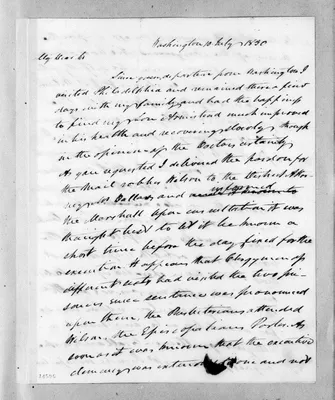 Washington 10 July 1830
My Dear Sir
Since your departure from Washington I
visited Philadelphia and remained there a few
days with my family and had the happiness
to find my son Armistead much improved
in his health and recovering slowly though
in the opinion of the Doctors certainly
As you requested I delivered the pardon for
the Mail robber Wilson to the District Attor
ney Mr Dallas, and
the Marshall Upon consultation it was
thought best to let it be known a
short time before the day fixed for the
execution It appears that Clergymen of
different sects had visited the two pri-
soners since sentence was pronounced
upon them, the Presbyterians attended
Wilson, the Episcopalians Porter. As
soon as it was known that the executive
clemency was extended to one and not